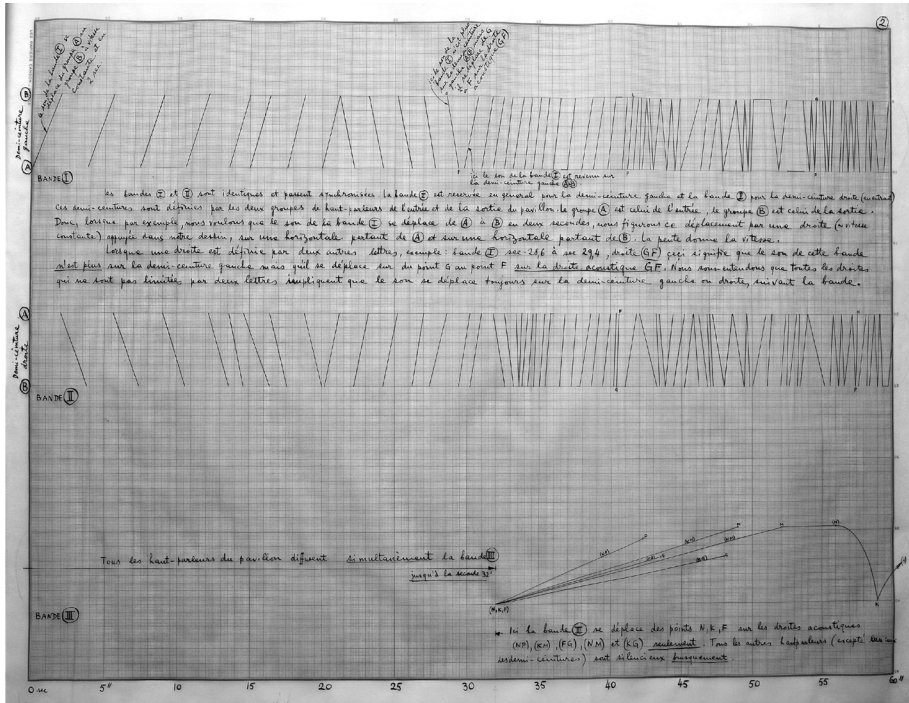 ②
le son de la bande Ⅰ se
déplace du groupe Ⓐ au
groupe Ⓑ à vitesse
constante et en
2 sec
ici le son de la
bande Ⅰ n'est plus
sur la demi-ceinture
gauche ⒶⒷ mais
il se déplace de G
à F sur la droite
acoustique (GF)
Ⓑ
Demi-ceinture
gauche
Ⓐ
BANDE Ⅰ
ici le son de la bande Ⅰ est revenu sur
la demi-ceinture gauche ⒶⒷ
Les bandes Ⅰ et Ⅱ sont identiques et passent synchronisées la bande Ⅰ est réservée en général pour la demi-ceinture gauche et la bande Ⅱ pour la demi-ceinture droite
Ces demi-ceintures sont définies par les deux groupes de haut-parleurs de l'entrée et de la sortie du pavillon. le groupe Ⓐ est celui de l'entrée, le groupe Ⓑ est celui de la sortie.
Donc, lorsque par exemple, nous voulons que le son de la bande Ⅰ se déplace de Ⓐ à Ⓑ en deux secondes, nous figurons ce déplacement par une droite (= vitesse
constante) appuyée dans notre dessin, sur une horizontale partant de Ⓐ et sur une horizontale partant de Ⓑ. la pente donne la vitesse.
Lorsque une droite est définie par deux autres lettres, exemple: bande Ⅰ sec-28,6 à sec 29,4, droite (GF) ceci signifie que le son de cette bande
n'est plus sur la demi-ceinture gauche mais qu'il se déplace sur du point G au point F sur la droite acoustique GF. Nous sous-entendons que toutes les droites
qui ne sont pas limitées par deux lettres impliquent que le son se déplace toujours sur la demi-ceinture gauche ou droite, suivant la bande.
Ⓐ
Demi-ceinture
droite
Ⓑ
BANDE Ⅱ
Tous les haut-parleurs du pavillon diffusent simultanément la bande Ⅲ
jusqu'à la seconde 32"
(N,K,F)
BANDE Ⅲ
Ici la bande Ⅲ se déplace des points N, K, F sur les droites acoustiques
(NP), (KM), (FG), (NM) et (KG) seulement. Tous les autres haut-parleurs (excepté
les demi-ceintures) sont silencieux brusquement.
0 sec 5" 10 15 20 25 30 35 40 45 50 55 60"